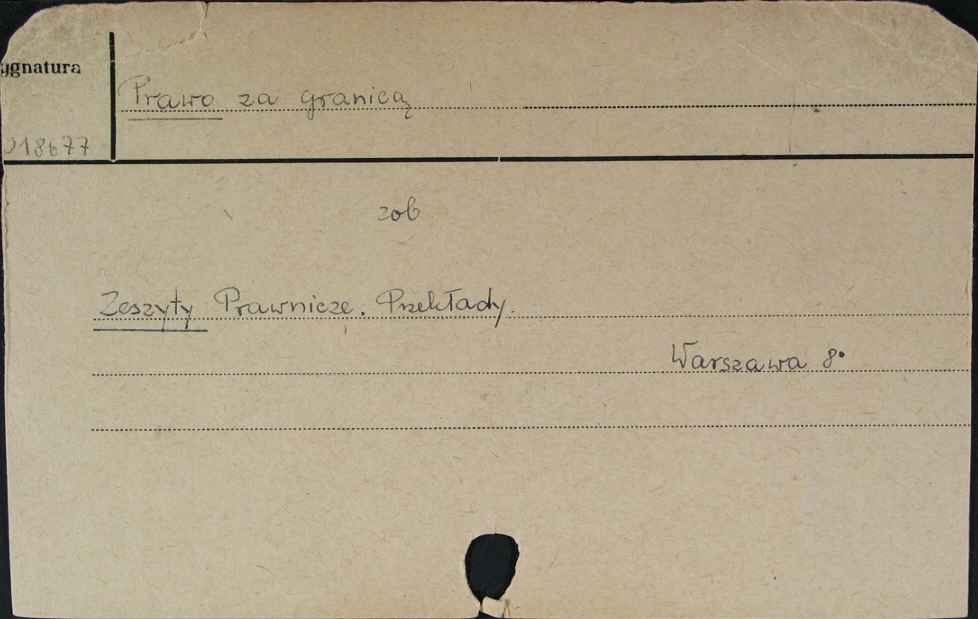 ygnatura
Prawo za granicą
018677
zob
Zeszyty Prawnicze. Przekłady.
Warszawa 8°